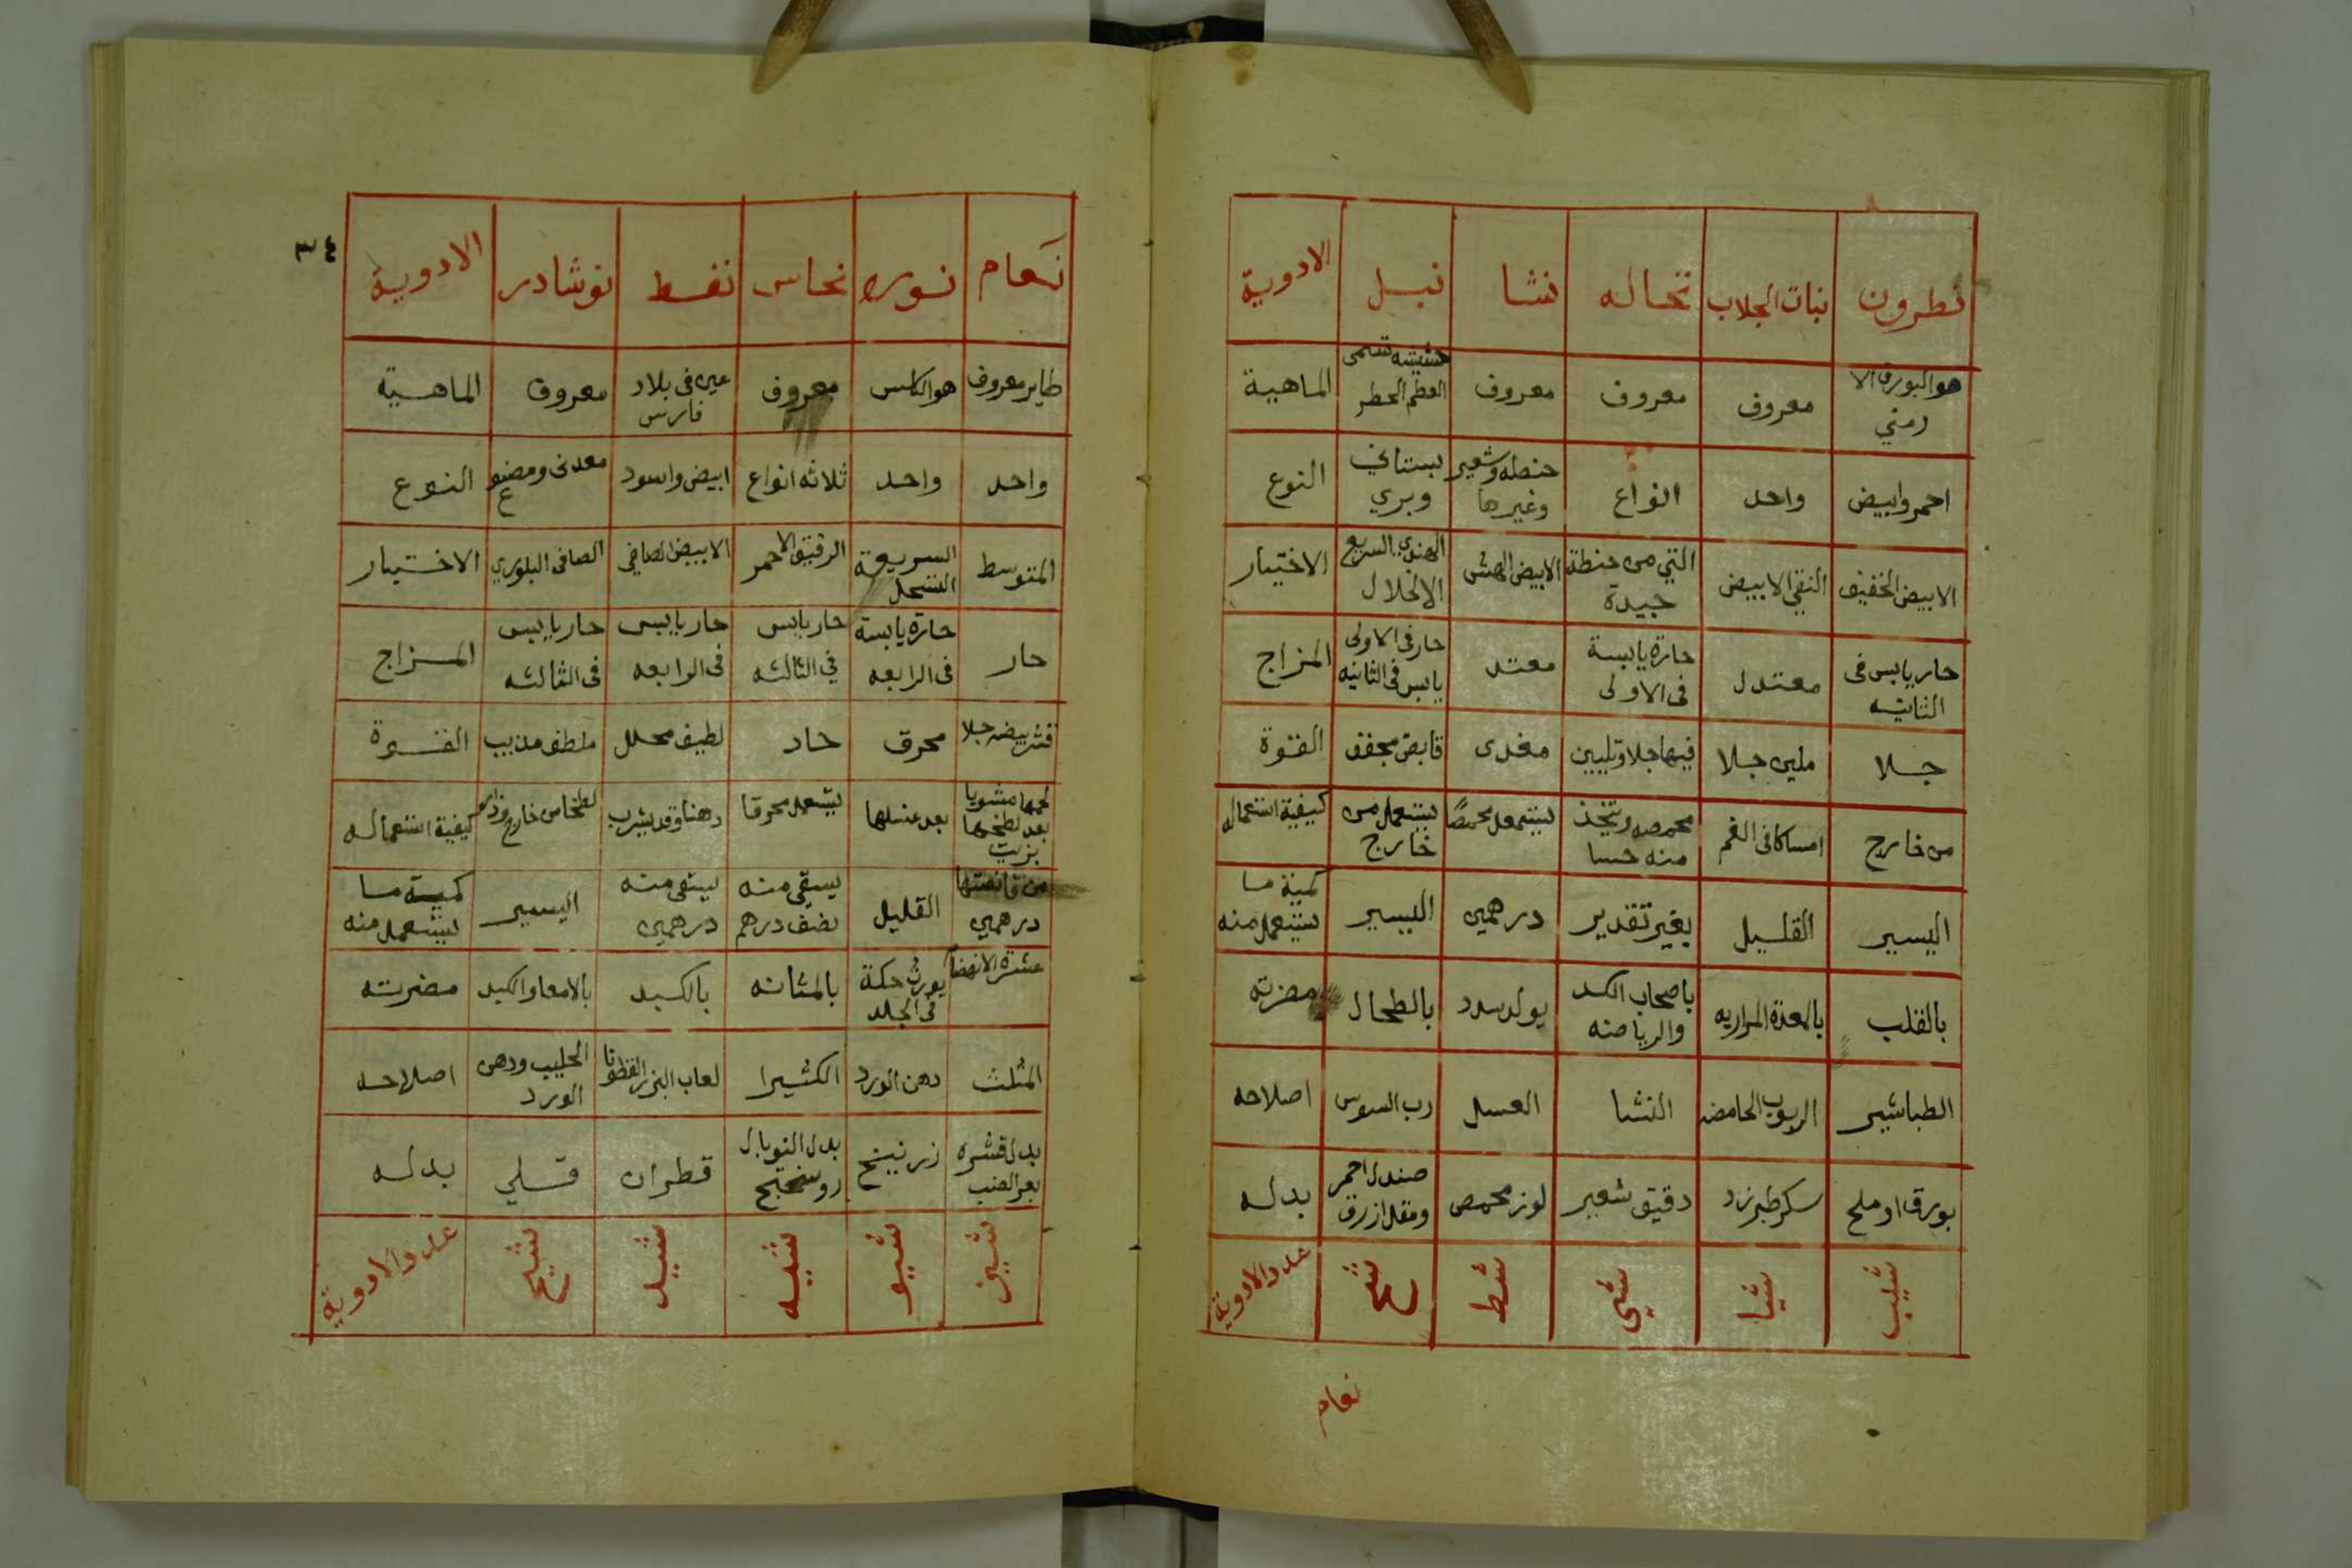 نطرون نبات الجلاب نخاله نشا نيل الادوية
هو البورق الا رمني معروف معروف معروف حشيشه تسمى العظلم الحطر الماهية
احمر وابيض واحد انواع حنطه وشعير وغيرها بستاني وبري النوع
الابيض الخفيف النقى الابيض التي من حنطة جيدة الابيض الهش الهندي السريع الانحلال الاختيار
حار يابس فى الثانيه معتدل حارة يابسة فى الاولى معتد حار فى الاولى يابس فى الثانيه المزاج
جلا ملين جلا فيها جلا وتليين مغدى قابض مجفف القوة
من خارج امساكا فى الفم محمصه ويتخذ منه حسا يستعمل محمصًا يستعمل من خارج كيفية استعماله
اليسير القليل بغير تقدير درهمين اليسير كمية ما يستعمل منه
بالقلب بالمعدة المراريه باصحاب الكد والرياضه يولد سدد بالطحال مضرته
الطباشير الربوب الحامضه النشا العسل رب السوس اصلاحه
بورق او ملح سكر طبرزد دقيق شعير لوز محمص صندل احمر ومقل ازرق بدله
شيب شيا شى شط شح عدد الادوية
نعام
٣٤
نعام نوره نحاس نفط نوشادر الادوية
طاير معروف هو الكلس معروف عين فى بلاد فارس معروف الماهية
واحد واحد ثلاثه انواع ابيض واسود معدنى ومصنوع النوع
المتوسط السريعة الرقيق الاحمر الابيض الصافي الصافى البلوري الاختيار
حار حارة يابسة فى الرابعه حار يابس في الثالثه حار يابس فى الرابعه حار يابس فى الثالثه المزاج
قشر بيضه جلا محرق حاد لطيف محلل ملطف مذيب القوة
لحمها مشويا بعد لطخها بزيت بعد غسلها يستعمل محرقا دهنا وقد يشرب لطخا من خارج كيفية استعماله
من قانصتها درهمين القليل يسقى منه نصف درهم يسقى منه درهمين اليسير كمية ما يستعمل منه
عشرة الانهضا يورث حكة فى الجلد بالمثانه بالكبد بالامعا والكبد مضرته
المثلث دهن الورد الكثيرا لعاب البزر القطونا الحليب ودهن الورد اصلاحه
بدل قشره بعر الضب زرنيخ بدل التوبال روسختج قطران قلي بدله
شيز شيو شيه شيد شيج عدد الادوية